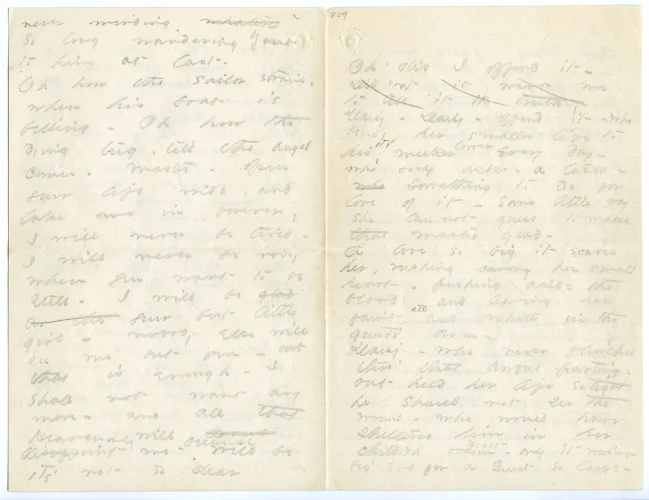 never minding
So long wandering
to him at last.
Oh how the sailor strains,
when his boat is
filling - Oh how the
dying tug, till the angel
comes. Master - open
your life wide, and
take me in forever,
I will never be tired -
I will never be noisy
when you want to be
still - I will be glad
your best little
girl - nobody else will
see me but you - but
that is enough - I
shall not want any
more - and all that
Heaven will
disappoint me - will be
it's not so dear
829
Oh' did I offend it -
it want me
to tell it the truth
Daisy - Daisy - offend it - who
bends her smaller life to
his, it's meeker lower every day -
who only asks - a task -
who something to do for
love of it - some little way
she cannot guess to make
that master glad -
A love so big it scares
her, rushing among her small
heart - pushing aside the
blood and leaving her
faint all and white in the
gust's arm -
Daisy - who never flinched
thro' that awful parting,
but held her life so tight
he should not see the
wound - who would have
sheltered him in her
childish - only it was'nt
big eno' for a Guest so large -